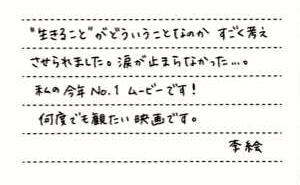 "生きること"がどういうことなのか すごく考え
させられました。涙が止まらなかった…。
私の今年No.1 ムービーです!
何度でも観たい映画です。
李絵